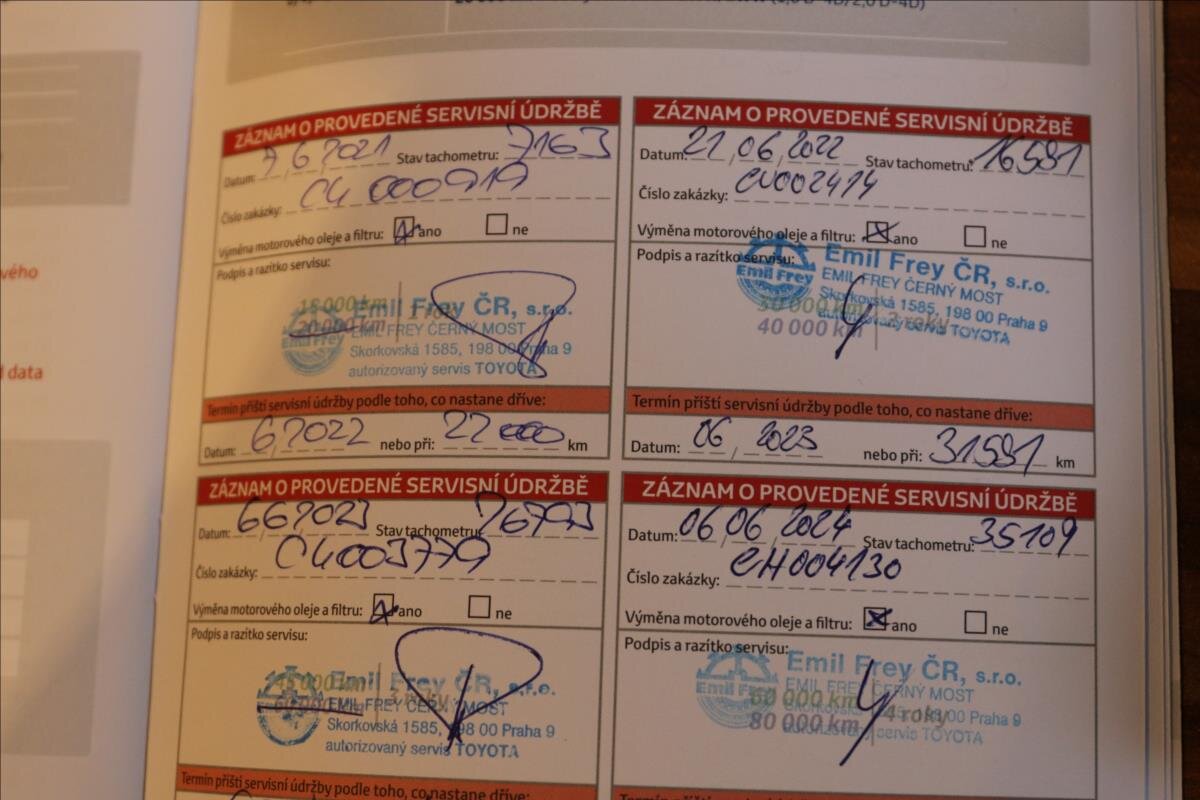 ZÁZNAM O PROVEDENÉ SERVISNÍ ÚDRŽBĚ
Datum: 7 6 2021 Stav tachometru: 7163
Číslo zakázky: C4 000919
Výměna motorového oleje a filtru: ano ne
Podpis a razítko servisu:
15 000 km
20 000 km
Emil Frey ČR, s.r.o.
Emil Frey
EMIL FREY ČERNÝ MOST
Skorkovská 1585, 198 00 Praha 9
autorizovaný servis TOYOTA
Termín příští servisní údržby podle toho, co nastane dříve:
Datum: 6/2022 nebo při: 22 000 km
ZÁZNAM O PROVEDENÉ SERVISNÍ ÚDRŽBĚ
Datum: 21 06 2022 Stav tachometru: 16591
Číslo zakázky: CV002414
Výměna motorového oleje a filtru: ano ne
Podpis a razítko servisu:
Emil Frey ČR, s.r.o.
Emil Frey
EMIL FREY ČERNÝ MOST
Skorkovská 1585, 198 00 Praha 9
autorizovaný servis TOYOTA
30 000 km
40 000 km
2 roky
Termín příští servisní údržby podle toho, co nastane dříve:
Datum: 06 2023 nebo při: 31591 km
ZÁZNAM O PROVEDENÉ SERVISNÍ ÚDRŽBĚ
Datum: 6 6 2023 Stav tachometru: 26793
Číslo zakázky: C4003779
Výměna motorového oleje a filtru: ano ne
Podpis a razítko servisu:
45 000 km
3 roky
Emil Frey ČR, s.r.o.
EMIL FREY ČERNÝ MOST
Skorkovská 1585, 198 00 Praha 9
autorizovaný servis TOYOTA
Termín příští servisní údržby podle toho, co nastane dříve:
ZÁZNAM O PROVEDENÉ SERVISNÍ ÚDRŽBĚ
Datum: 06 06 2024 Stav tachometru: 35109
Číslo zakázky: CH004130
Výměna motorového oleje a filtru: ano ne
Podpis a razítko servisu:
Emil Frey ČR, s.r.o.
Emil Frey
EMIL FREY ČERNÝ MOST
Skorkovská 1585, 198 00 Praha 9
autorizovaný servis TOYOTA
60 000 km
80 000 km
4 roky
data